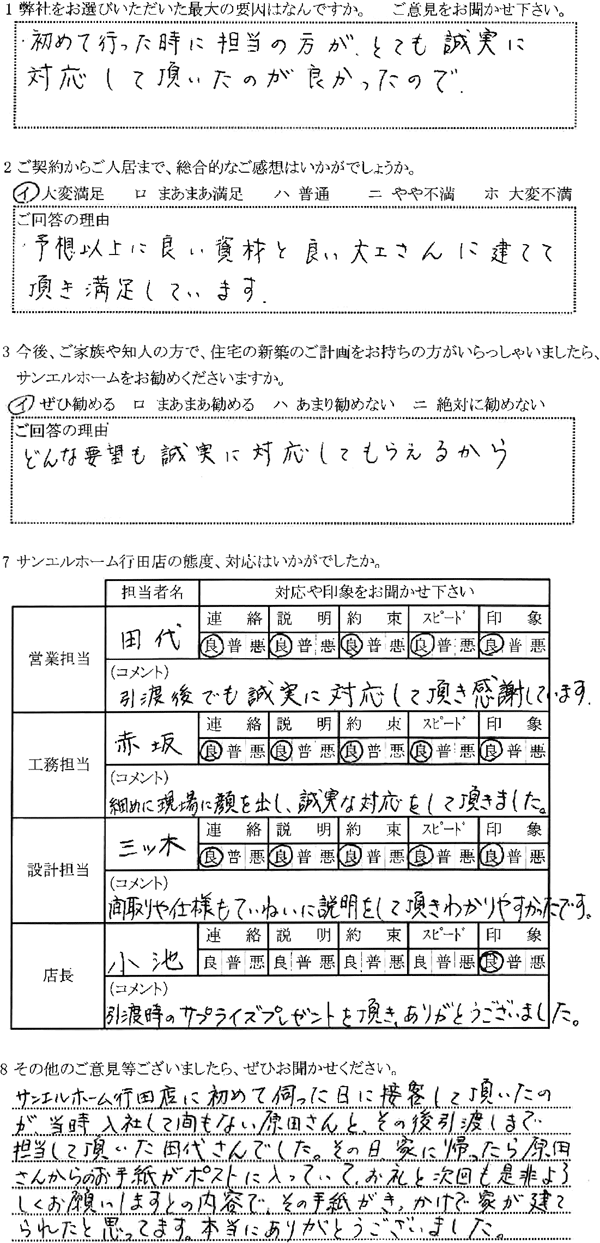 1 弊社をお選びいただいた最大の要因はなんですか。 ご意見をお聞かせ下さい。
・初めて行った時に担当の方が、とても誠実に
対応して頂いたのが良かったので.
2 ご契約からご入居まで、総合的なご感想はいかがでしょうか。
イ 大変満足 ロ まあまあ満足 ハ 普通 ニ やや不満 ホ 大変不満
ご回答の理由
・予想以上に良い資材と良い大工さんに建てて
頂き満足しています.
3 今後、ご家族や知人の方で、住宅の新築のご計画をお持ちの方がいらっしゃいましたら、
サンエルホームをお勧めくださいますか。
イ ぜひ勧める ロ まあまあ勧める ハ あまり勧めない ニ 絶対に勧めない
ご回答の理由
どんな要望も誠実に対応してもらえるから
7 サンエルホーム行田店の態度、対応はいかがでしたか。
担当者名 対応や印象をお聞かせ下さい
営業担当 田代 連絡 説明 約束 スピード 印象
良 普 悪 良 普 悪 良 普 悪 良 普 悪 良 普 悪
(コメント)
引渡後でも誠実に対応して頂き感謝しています.
工務担当 赤坂 連絡 説明 約束 スピード 印象
良 普 悪 良 普 悪 良 普 悪 良 普 悪 良 普 悪
(コメント)
細めに現場に顔を出し、誠実な対応をして頂きました。
設計担当 三ッ木 連絡 説明 約束 スピード 印象
良 普 悪 良 普 悪 良 普 悪 良 普 悪 良 普 悪
(コメント)
間取りや仕様もていねいに説明をして頂きわかりやすかったです。
店長 小池 連絡 説明 約束 スピード 印象
良 普 悪 良 普 悪 良 普 悪 良 普 悪 良 普 悪
(コメント)
引渡時のサプライズプレゼントを頂き、ありがとうございました。
8 その他のご意見等ございましたら、ぜひお聞かせください。
サンエルホーム行田店に初めて伺った日に接客して頂いたの
が、当時入社して間もない原田さんと、その後引渡しまで
担当して頂いた田代さんでした。その日、家に帰ったら原田
さんからのお手紙がポストに入っていて、お礼と次回も是非よろ
しくお願いしますとの内容で、その手紙がきっかけで家が建て
られたと思ってます。本当にありがとうございました。